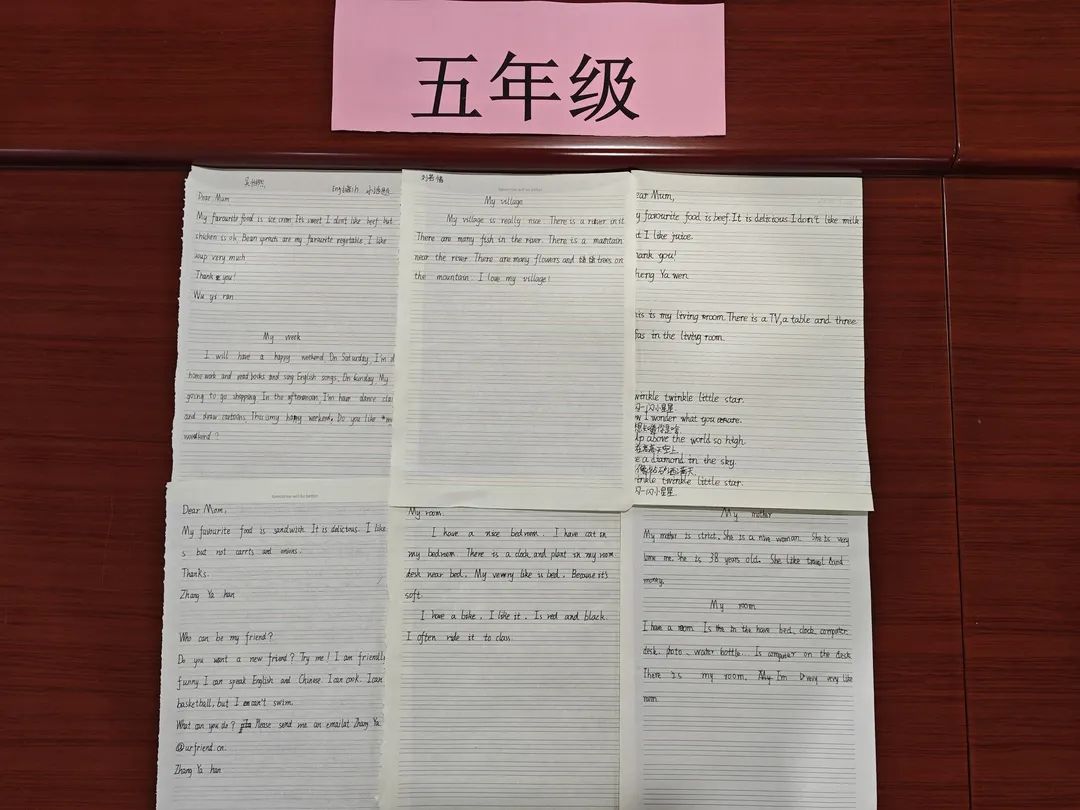 五年级
English
Dear Mum
My favourite food is ice crem It's sweet I don't like beef, but
chicken is ok. Bean sprouts are my favourite vegetable. I like
very much
Thank you!
Wu yi ran
My week
I will have a happy weekend On Saturday, I'm
home work and read books and sing English songs. On Sunday. My
going to go shopping. In the afternoon, I'm have dance
and draw cartoons. This is my happy weekend. Do you like
weekend?
My village
My village is really nice. There is a river in it
There are many fish in the river. There is a mountain
near the river There are many flowers and trees on
the mountain. I love my village!
ear Mum,
y favourite food is beef. It is delicious I don't like milk
I like juice.
hank you!
heng Ya wen
is is my living room. There is a TV, a table and three
fas in the living room.
winkle twinkle little star.
闪一闪小星星
w I wonder what you are.
Up above the world so high.
e a diamond in the sky.
inkle twinkle little star.
闪一闪小星星
Tomorrow will be better
Dear Mom,
My favourite food is sandwich. It is delicious. I like
s but not carrts and onions.
Thanks.
Zhang Ya han
Who can be my friend?
Do you want a new friend? Try me! I am friendly
funny I can speak English and Chinese. I can cook. I can
basketball, but I can't swim.
What can you do? Please send me an email at Zhang Ya
@urfriend.cn.
Zhang Ya han
My room.
I have a nice bedroom. I have cat in
my bedroom. There is a clock and plant in my room
desk near bed. My very like is bed. Because it's
soft.
I have a bike. I like it. Is red and black.
I often ride it to class.
My mother
My mother is strict. She is a nice woman. She is very
love me. She is 38 years old. She like travel and
money.
My room
I have a room. Is in the have bed, clock, computer
desk, photo, water bottle... Is computer on the desk
There is my room. I'm very very like
room